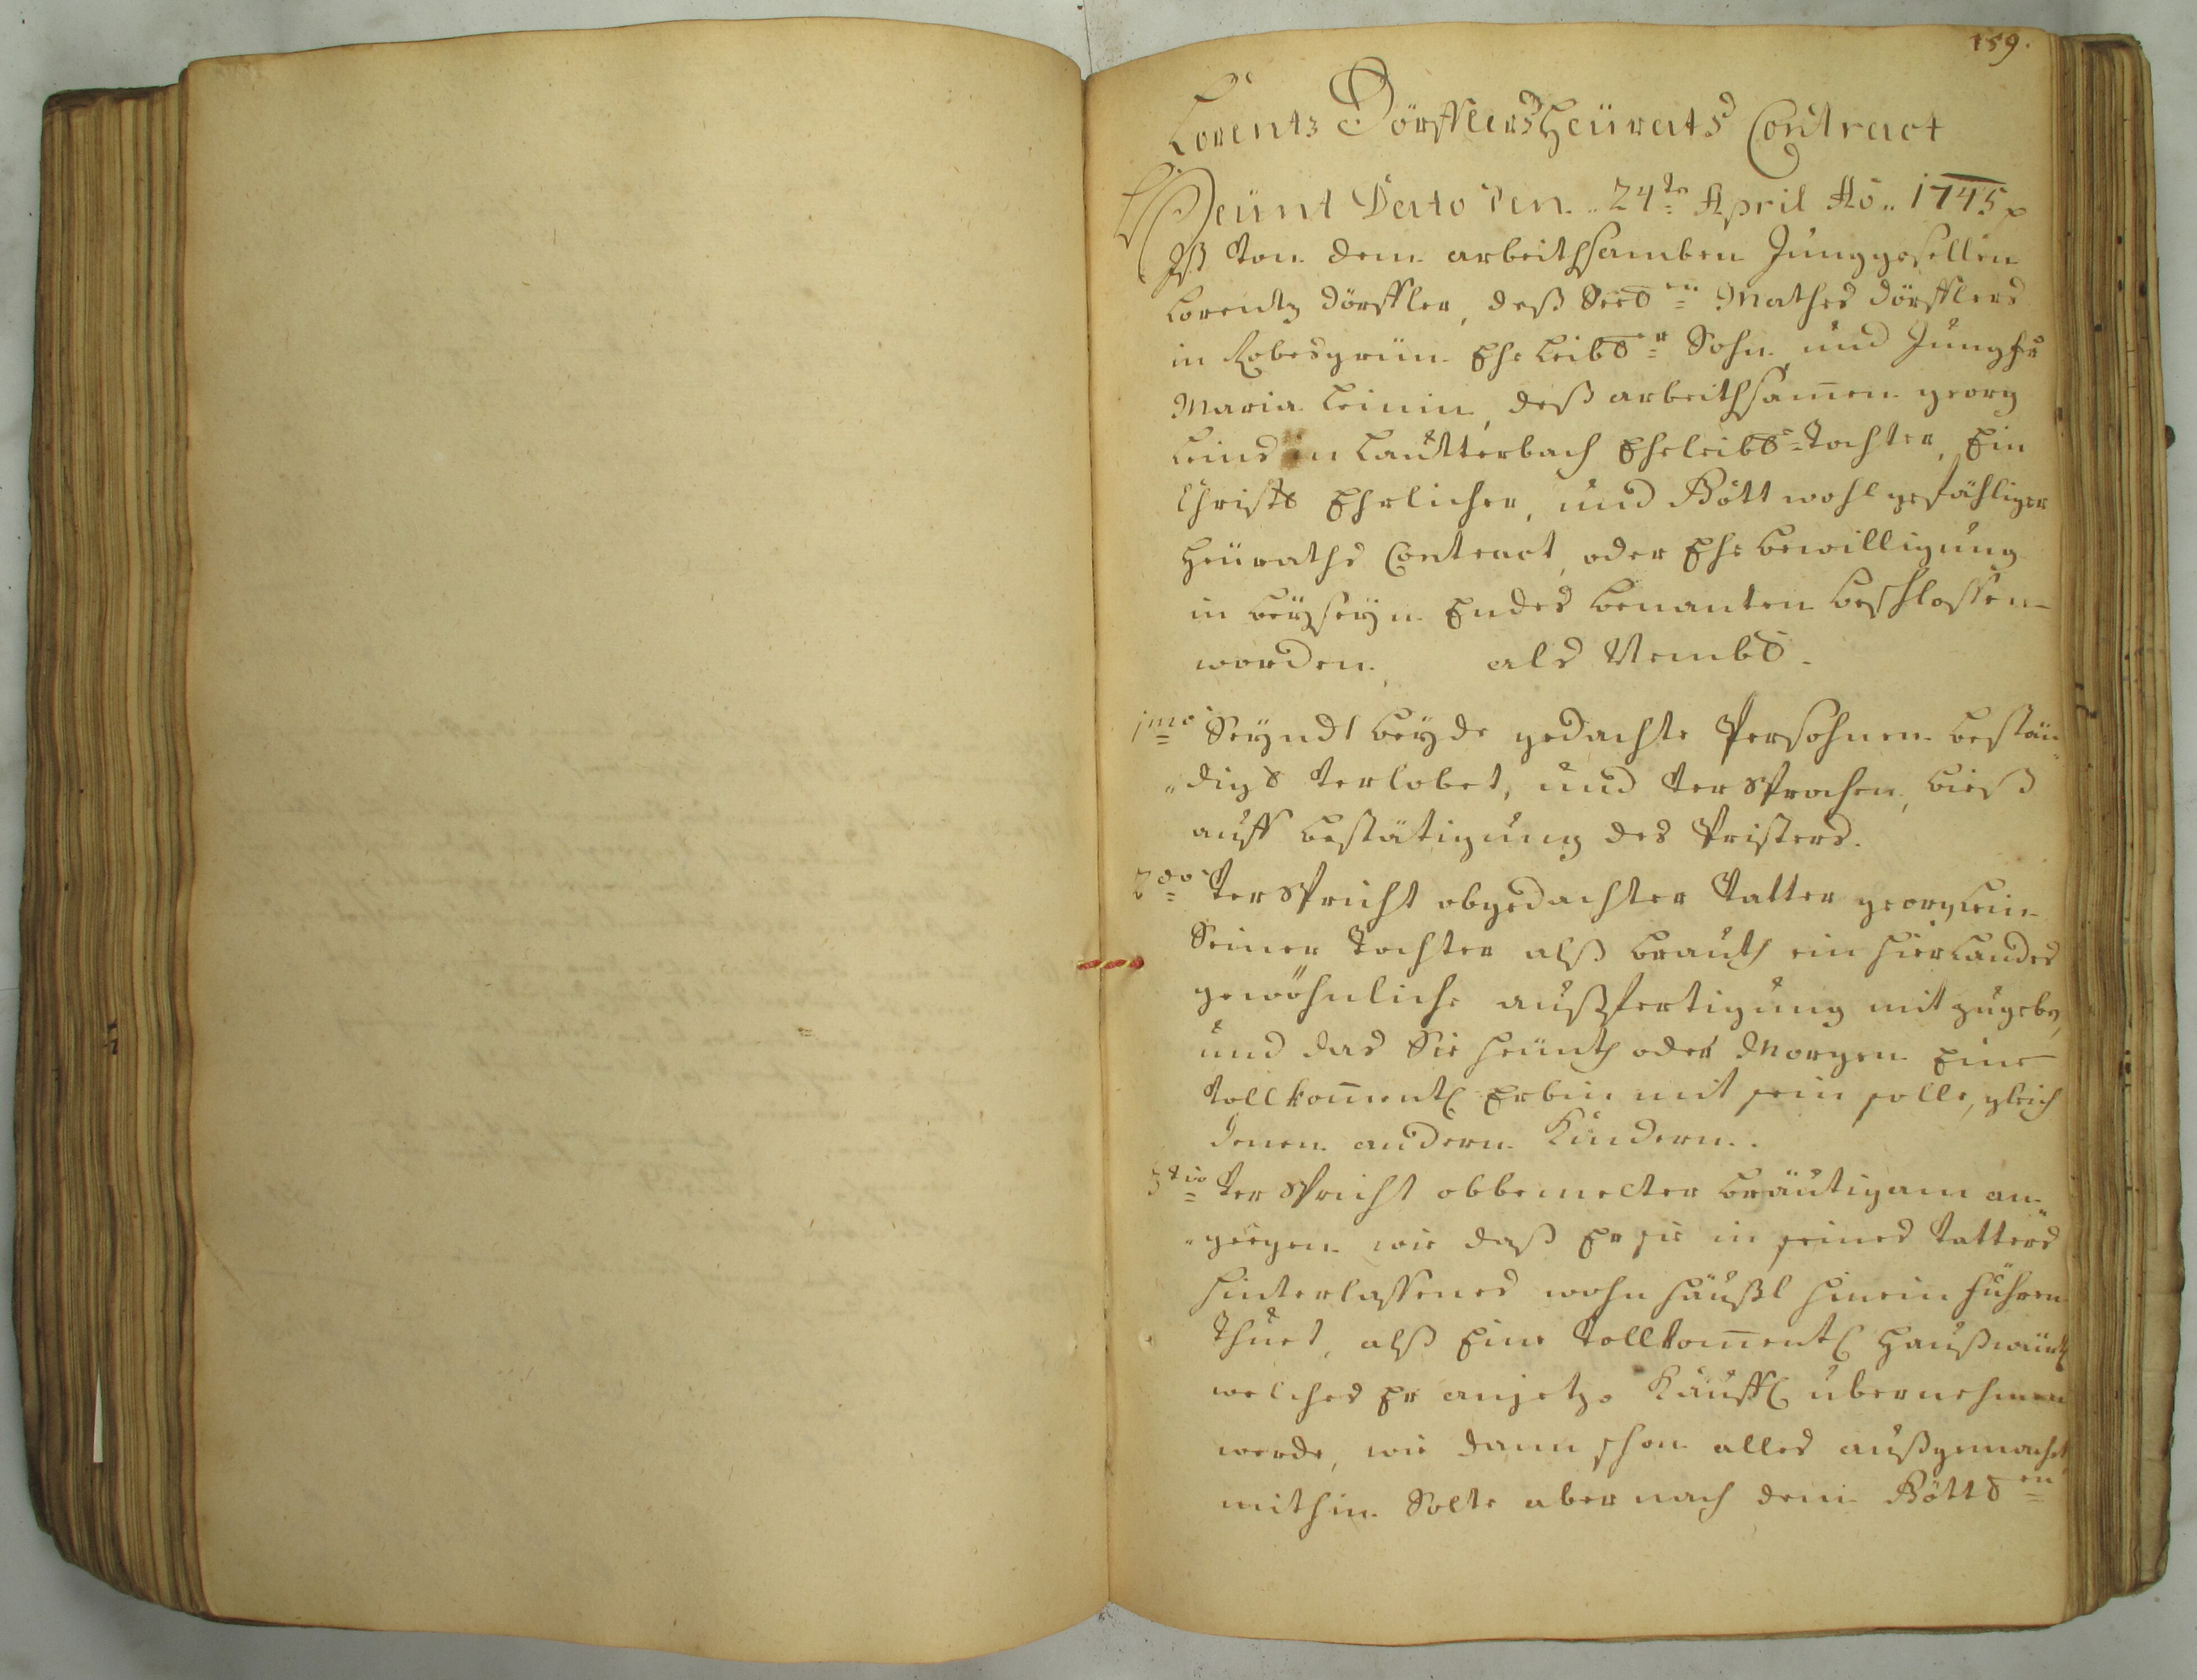 159.
Lorentz Dörfflers Heürats Contract
Heünt Dato den 24te April Ao 1745
Ist von dem arbeithsamben Junggesellen
Lorentz Dörffler, deß Seel: Mathes Dörfflers
in Robesgrün Eheleibl: Sohn, und Jungfr
Maria Leinin, deß arbeithsam̄en georg
Leins in Lautterbach Eheleibl: Tochter, Ein
Christl Ehrlicher, und Gott wohlgefähliger
Heüraths Contract, oder Ehe bewilligung
in beyseyn Endes benanten beschlossen
worden, als Nembl.
1mo Seyndt beyde gedachte Persohnen bestän
digl verlobet, und versprochen, bieß
auff bestätigung des Pristers.
2do Verspricht obgedachter Vatter georg Lein
Seiner Tochter alß brauth ein hierlandes
gewöhnliche außfertigung mit zugeben,
und das Sie heünth oder Morgen Eine
vollkom̄ent Erbin mit sein solle, gleich
denen andern Kindern.
3tio Verspricht obbemelter bräutigam an
geegen wie daß Er sie in seines Vatters
hinterlassenes wohn häußl hinein führen
Thuet, alß Eine vollkom̄ent Haußwürth
welches Er anjetzo Kauffl übernehmen
werde, wie dann schon alles außgemacht
mithin Solte aber nach dem Göttl:en